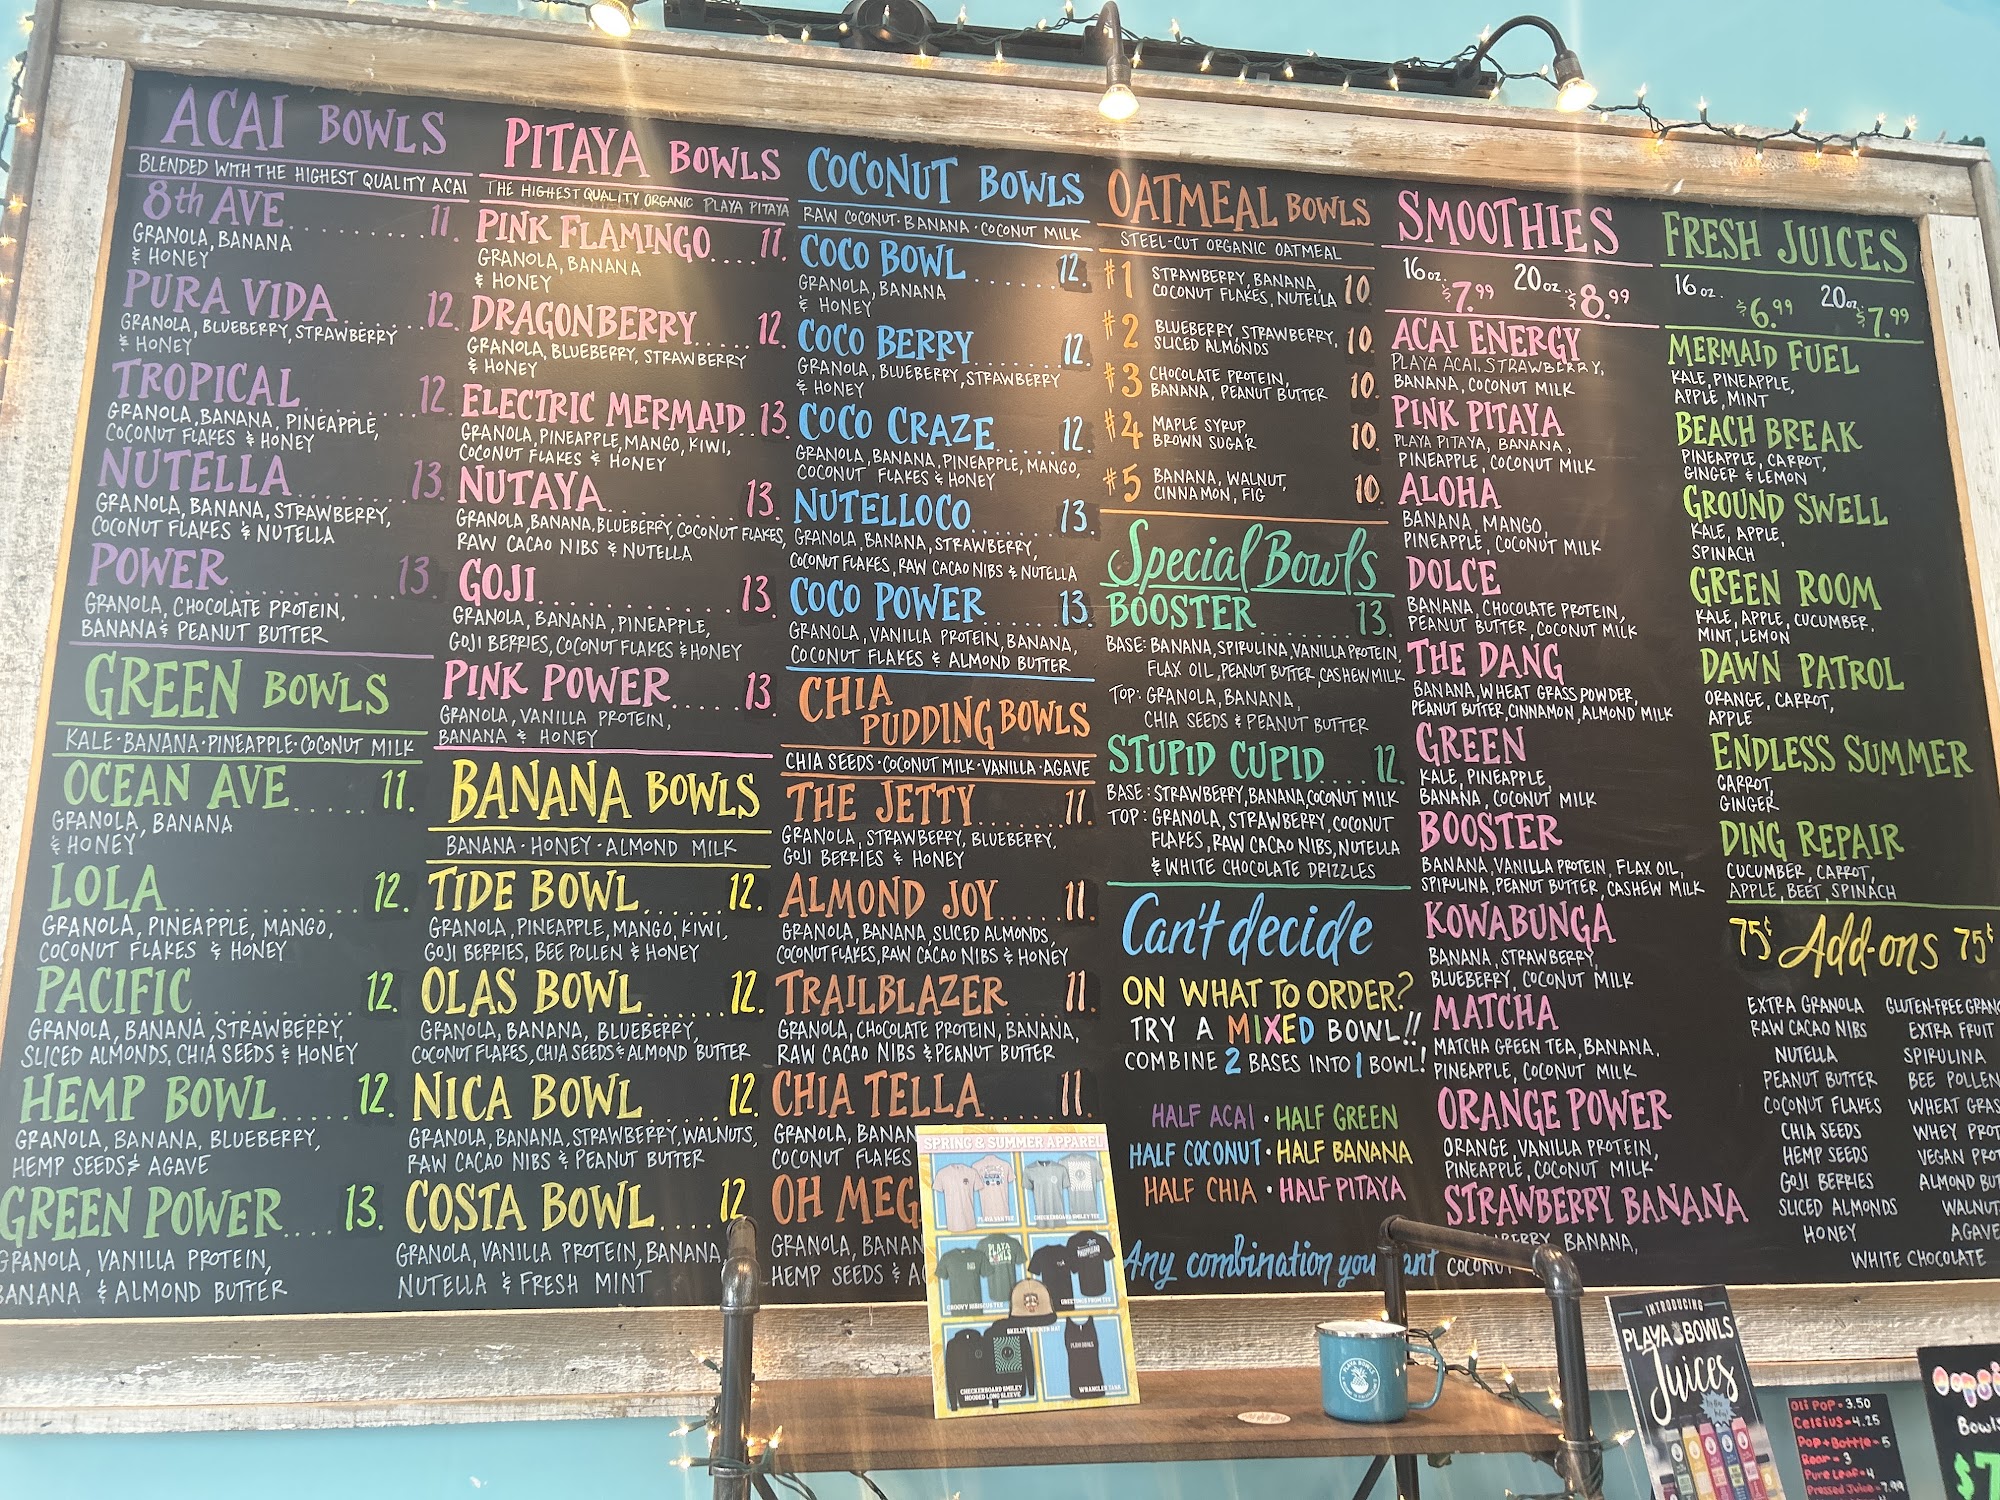 ACAI BOWLS
BLENDED WITH THE HIGHEST QUALITY ACAI
8th AVE........11.
GRANOLA, BANANA
& HONEY
PURA VIDA........12.
GRANOLA, BLUEBERRY, STRAWBERRY
& HONEY
TROPICAL........12.
GRANOLA, BANANA, PINEAPPLE,
COCONUT FLAKES & HONEY
NUTELLA........13.
GRANOLA, BANANA, STRAWBERRY,
COCONUT FLAKES & NUTELLA
POWER........13
GRANOLA, CHOCOLATE PROTEIN,
BANANA & PEANUT BUTTER
GREEN BOWLS
KALE · BANANA · PINEAPPLE · COCONUT MILK
OCEAN AVE.....11.
GRANOLA, BANANA
& HONEY
LOLA........12.
GRANOLA, PINEAPPLE, MANGO,
COCONUT FLAKES & HONEY
PACIFIC........12.
GRANOLA, BANANA, STRAWBERRY,
SLICED ALMONDS, CHIA SEEDS & HONEY
HEMP BOWL.....12.
GRANOLA, BANANA, BLUEBERRY,
HEMP SEEDS & AGAVE
GREEN POWER....13.
GRANOLA, VANILLA PROTEIN,
BANANA & ALMOND BUTTER
PITAYA BOWLS
THE HIGHEST QUALITY ORGANIC PLAYA PITAYA
PINK FLAMINGO....11.
GRANOLA, BANANA
& HONEY
DRAGONBERRY.....12.
GRANOLA, BLUEBERRY, STRAWBERRY
& HONEY
ELECTRIC MERMAID 13.
GRANOLA, PINEAPPLE, MANGO, KIWI,
COCONUT FLAKES & HONEY
NUTAYA........13.
GRANOLA, BANANA, BLUEBERRY, COCONUT FLAKES,
RAW CACAO NIBS & NUTELLA
GOJI........13.
GRANOLA, BANANA, PINEAPPLE,
GOJI BERRIES, COCONUT FLAKES & HONEY
PINK POWER.....13.
GRANOLA, VANILLA PROTEIN,
BANANA & HONEY
BANANA BOWLS
BANANA · HONEY · ALMOND MILK
TIDE BOWL......12.
GRANOLA, PINEAPPLE, MANGO, KIWI,
GOJI BERRIES, BEE POLLEN & HONEY
OLAS BOWL......12.
GRANOLA, BANANA, BLUEBERRY,
COCONUT FLAKES, CHIA SEEDS & ALMOND BUTTER
NICA BOWL......12.
GRANOLA, BANANA, STRAWBERRY, WALNUTS,
RAW CACAO NIBS & PEANUT BUTTER
COSTA BOWL....12
GRANOLA, VANILLA PROTEIN, BANANA,
NUTELLA & FRESH MINT
COCONUT BOWLS
RAW COCONUT · BANANA · COCONUT MILK
COCO BOWL......12.
GRANOLA, BANANA
& HONEY
COCO BERRY......12.
GRANOLA, BLUEBERRY, STRAWBERRY
& HONEY
COCO CRAZE.....12.
GRANOLA, BANANA, PINEAPPLE, MANGO,
COCONUT FLAKES & HONEY
NUTELLOCO......13.
GRANOLA, BANANA, STRAWBERRY,
COCONUT FLAKES, RAW CACAO NIBS & NUTELLA
COCO POWER.....13.
GRANOLA, VANILLA PROTEIN, BANANA,
COCONUT FLAKES & ALMOND BUTTER
CHIA
PUDDING BOWLS
CHIA SEEDS · COCONUT MILK · VANILLA · AGAVE
THE JETTY......11.
GRANOLA, STRAWBERRY, BLUEBERRY,
GOJI BERRIES & HONEY
ALMOND JOY.....11.
GRANOLA, BANANA, SLICED ALMONDS,
COCONUT FLAKES, RAW CACAO NIBS & HONEY
TRAILBLAZER....11.
GRANOLA, CHOCOLATE PROTEIN, BANANA,
RAW CACAO NIBS & PEANUT BUTTER
CHIA TELLA.....11.
GRANOLA, BANAN
COCONUT FLAKES
OH MEG
GRANOLA, BANAN
HEMP SEEDS & AG
OATMEAL BOWLS
STEEL-CUT ORGANIC OATMEAL
#1 STRAWBERRY, BANANA, 10.
COCONUT FLAKES, NUTELLA
#2 BLUEBERRY, STRAWBERRY, 10.
SLICED ALMONDS
#3 CHOCOLATE PROTEIN, 10.
BANANA, PEANUT BUTTER
#4 MAPLE SYRUP, 10.
BROWN SUGAR
#5 BANANA, WALNUT, 10.
CINNAMON, FIG
Special Bowls
BOOSTER........13.
BASE: BANANA, SPIRULINA, VANILLA PROTEIN,
FLAX OIL, PEANUT BUTTER, CASHEW MILK
TOP: GRANOLA, BANANA,
CHIA SEEDS & PEANUT BUTTER
STUPID CUPID....12.
BASE: STRAWBERRY, BANANA, COCONUT MILK
TOP: GRANOLA, STRAWBERRY, COCONUT
FLAKES, RAW CACAO NIBS, NUTELLA
& WHITE CHOCOLATE DRIZZLES
Can't decide
ON WHAT TO ORDER?
TRY A MIXED BOWL!!
COMBINE 2 BASES INTO 1 BOWL!
HALF ACAI · HALF GREEN
HALF COCONUT · HALF BANANA
HALF CHIA · HALF PITAYA
Any combination you ant
SMOOTHIES
16oz. $7.99 20oz. $8.99
ACAI ENERGY
PLAYA ACAI, STRAWBERRY,
BANANA, COCONUT MILK
PINK PITAYA
PLAYA PITAYA, BANANA,
PINEAPPLE, COCONUT MILK
ALOHA
BANANA, MANGO,
PINEAPPLE, COCONUT MILK
DOLCE
BANANA, CHOCOLATE PROTEIN,
PEANUT BUTTER, COCONUT MILK
THE DANG
BANANA, WHEAT GRASS POWDER,
PEANUT BUTTER, CINNAMON, ALMOND MILK
GREEN
KALE, PINEAPPLE,
BANANA, COCONUT MILK
BOOSTER
BANANA, VANILLA PROTEIN, FLAX OIL,
SPIRULINA, PEANUT BUTTER, CASHEW MILK
KOWABUNGA
BANANA, STRAWBERRY,
BLUEBERRY, COCONUT MILK
MATCHA
MATCHA GREEN TEA, BANANA,
PINEAPPLE, COCONUT MILK
ORANGE POWER
ORANGE, VANILLA PROTEIN,
PINEAPPLE, COCONUT MILK
STRAWBERRY BANANA
BERRY, BANANA,
COCONUT
FRESH JUICES
16oz. $6.99 20oz. $7.99
MERMAID FUEL
KALE, PINEAPPLE,
APPLE, MINT
BEACH BREAK
PINEAPPLE, CARROT,
GINGER & LEMON
GROUND SWELL
KALE, APPLE,
SPINACH
GREEN ROOM
KALE, APPLE, CUCUMBER,
MINT, LEMON
DAWN PATROL
ORANGE, CARROT,
APPLE
ENDLESS SUMMER
CARROT,
GINGER
DING REPAIR
CUCUMBER, CARROT,
APPLE, BEET, SPINACH
75¢ Add-ons 75¢
EXTRA GRANOLA GLUTEN-FREE GRANO
RAW CACAO NIBS EXTRA FRUIT
NUTELLA SPIRULINA
PEANUT BUTTER BEE POLLEN
COCONUT FLAKES WHEAT GRAS
CHIA SEEDS WHEY PROT
HEMP SEEDS VEGAN PROT
GOJI BERRIES ALMOND BUT
SLICED ALMONDS WALNUT
HONEY AGAVE
WHITE CHOCOLATE
SPRING & SUMMER APPAREL
PLAYA VAN TEE
CHECKERBOARD SMILEY TEE
GROOVY HIBISCUS TEE
GREETINGS FROM TEE
CHECKERBOARD SMILEY
HOODED LONG SLEEVE
WRANGLER TANK
PLAYA BOWLS
INTRODUCING
PLAYA BOWLS
Juices
Oli POP - 3.50
Celsius - 4.25
Pop + Bottle - 5
Roar - 3
Pure Leaf - 4
Pressed Juice - 7.99
Bowls
$7